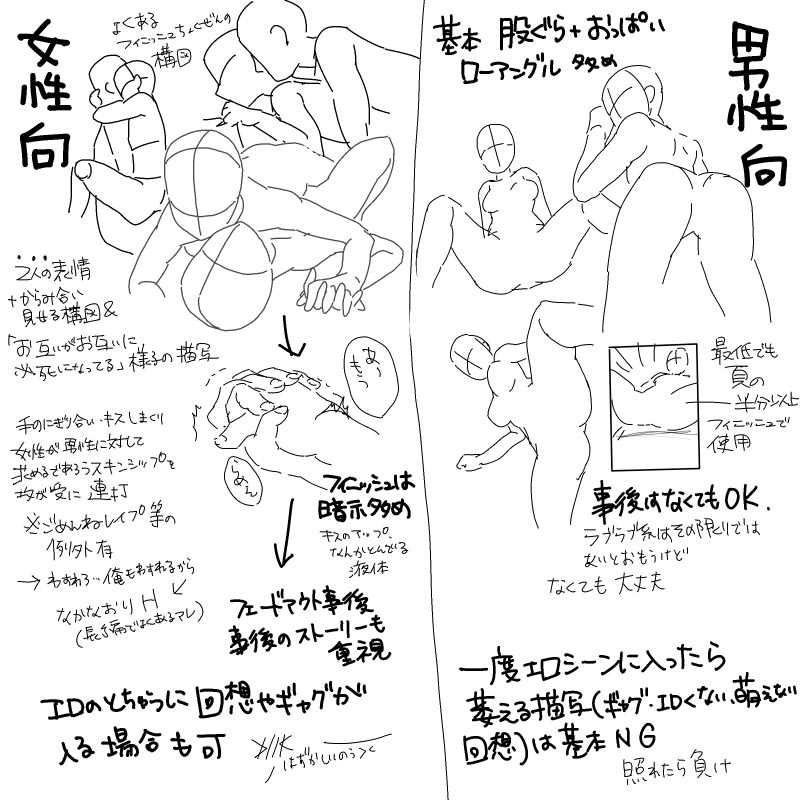 女性向
よくある
フィニッシュちょくぜんの
構図
2人の表情
+からみ合い
見せる構図&
「お互いがお互いに
必死になってる」様子の描写
手のにぎり合い・キスしまくり
女性が男性に対して
求めるであろうスキンシップを
攻が受に連打
※ごめんねレイプ等の
例外有
→わすれろ…俺もわすれるから
なかなおりH
(長編でよくあるアレ)
あっ
もう
らめん
フィニッシュは
暗示多め
キスのアップ、
なんかとんでる
液体
フェードアウト事後
事後のストーリーも
重視
エロのとちゅうに回想やギャグが
入る場合も可
はずかしいのうwく
男性向
基本 股ぐら+おっぱい
ローアングル 多め
最低でも
頁の
半分以上
フィニッシュで
使用
事後はなくてもOK.
ラブラブ系はその限りでは
ないとおもうけど
なくても大丈夫
一度エロシーンに入ったら
萎える描写(ギャグ・エロくない、萌えない
回想)は基本NG
照れたら負け